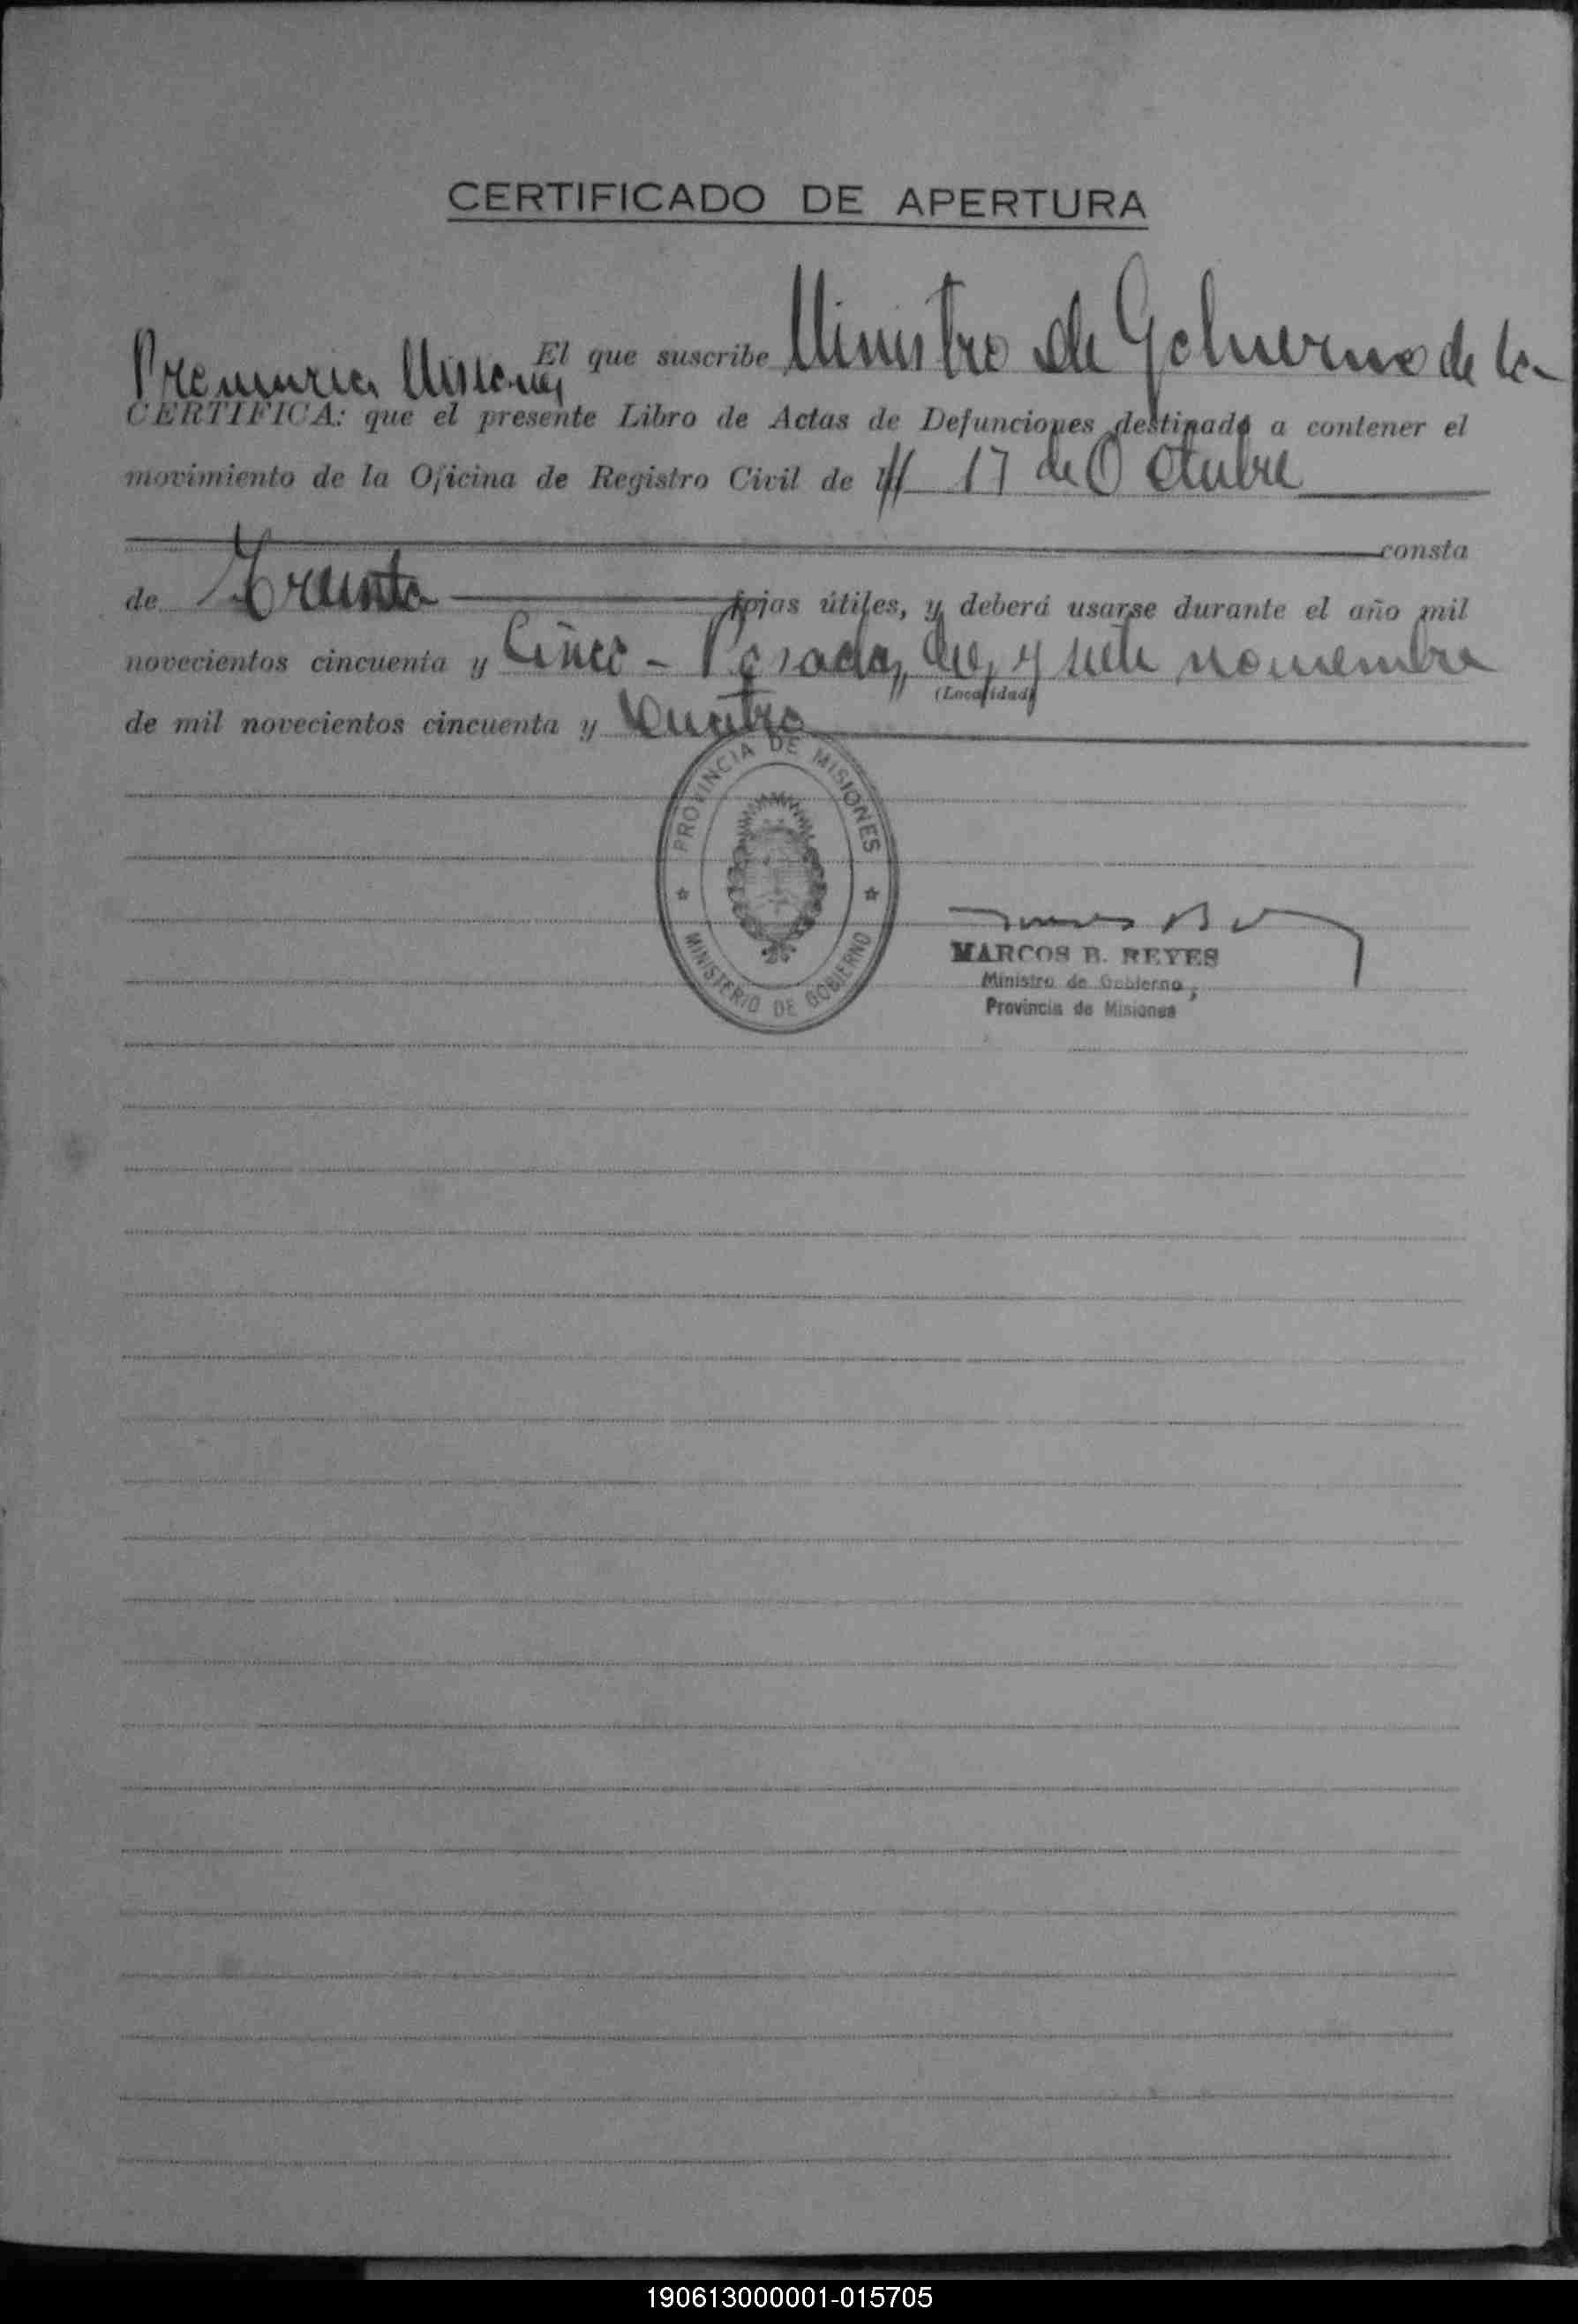 CERTIFICADO DE APERTURA
El que suscribe Ministro de Gobierno de la
Provincia Misiones
CERTIFICA: que el presente Libro de Actas de Defunciones destinado a contener el
movimiento de la Oficina de Registro Civil de 17 de Octubre
consta
de Treinta fojas útiles, y deberá usarse durante el año mil
novecientos cincuenta y Cinco - Posadas, diez y siete noviembre
(Localidad)
de mil novecientos cincuenta y Cuatro
PROVINCIA DE MISIONES
MINISTERIO DE GOBIERNO
MARCOS B. REYES
Ministro de Gobierno
Provincia de Misiones
190613000001-015705